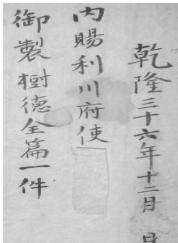 乾隆三十六年十二月 日
內賜利川府使
御製樹德全篇一件